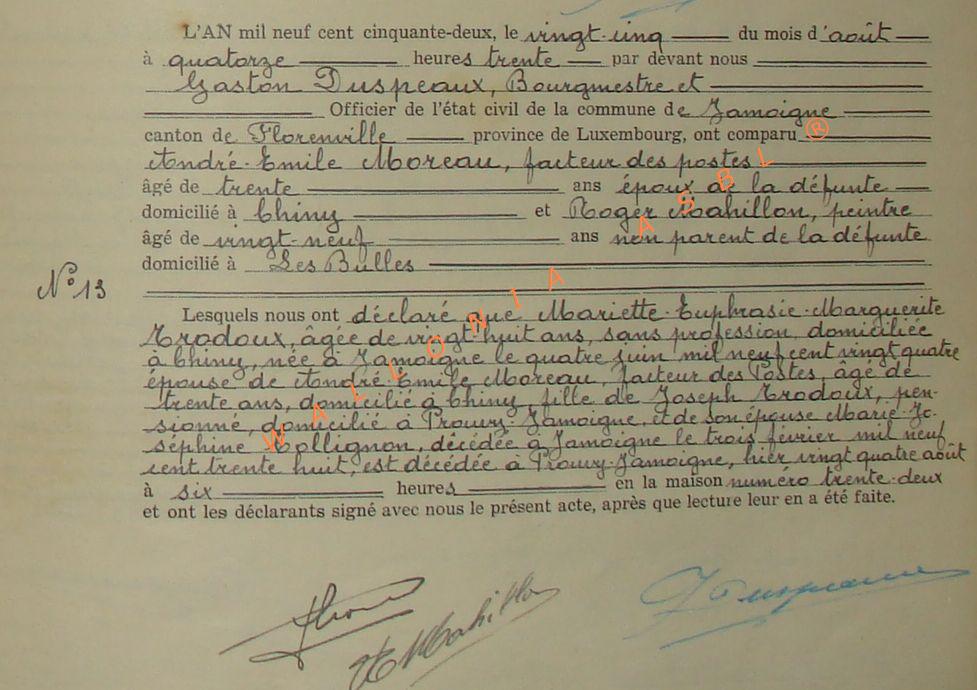 L'AN mil neuf cent cinquante-deux, le vingt-cinq du mois d'août
à quatorze heures trente par devant nous
Gaston Duspeaux, Bourgmestre et
Officier de l'état civil de la commune de Jamoigne
canton de Florenville province de Luxembourg, ont comparu ®
André-Emile Moreau, facteur des postes
âgé de trente ans époux de la défunte
domicilié à Chiny et Roger Mahillon, peintre
âgé de vingt-neuf ans non parent de la défunte
domicilié à Les Bulles
N° 13
Lesquels nous ont déclaré que Mariette-Euphrasie-Marguerite
Trodoux, âgée de vingt-huit ans, sans profession, domiciliée
à Chiny, née à Jamoigne le quatre juin mil neuf cent vingt quatre
épouse de André-Emile Moreau, facteur des Postes, âgé de
trente ans, domicilié à Chiny, fille de Joseph Trodoux, pen-
sionné, domicilié à Prouvy-Jamoigne, et de son épouse Marie-Jo-
séphine Collignon, décédée à Jamoigne le trois février mil neuf
cent trente huit, est décédée à Prouvy-Jamoigne, hier vingt quatre août
à six heures en la maison numéro trente-deux
et ont les déclarants signé avec nous le présent acte, après que lecture leur en a été faite.
WALLONIA ASBL
Mahillon